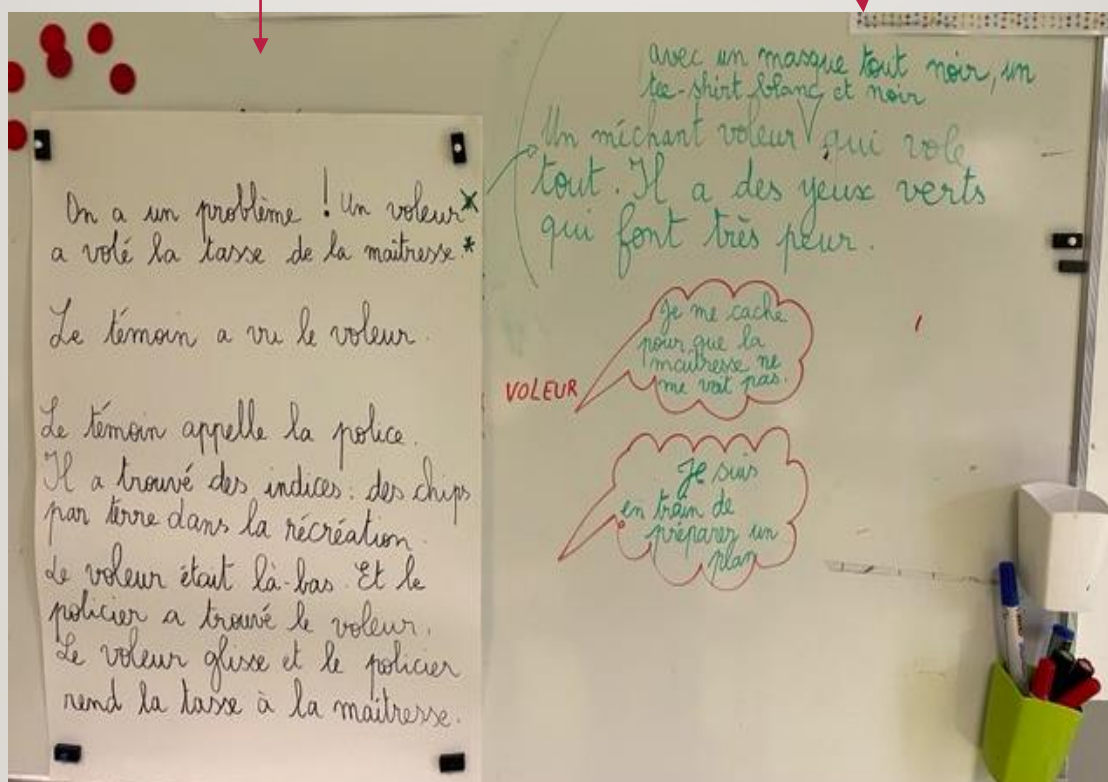 On a un problème ! Un voleur*
a volé la tasse de la maîtresse.*
Le témoin a vu le voleur.
Le témoin appelle la police.
Il a trouvé des indices : des chips
par terre dans la récréation.
Le voleur était là-bas. Et le
policier a trouvé le voleur.
Le voleur glisse et le policier
rend la tasse à la maîtresse.
avec un masque tout noir, un
tee-shirt blanc et noir
Un méchant voleur, qui vole
tout. Il a des yeux verts
qui font très peur.
VOLEUR
Je me cache
pour que la
maîtresse ne
me voit pas.
Je suis
en train de
préparer un
plan